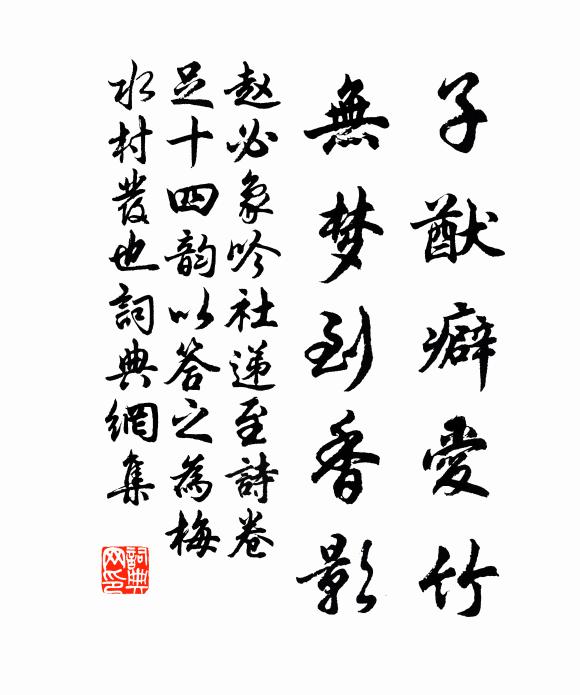 子猷癖愛竹
無梦到香影
赵必象吟社递至詩卷
足十四韵以答之為梅
水村發也詞典網集
詞典网印